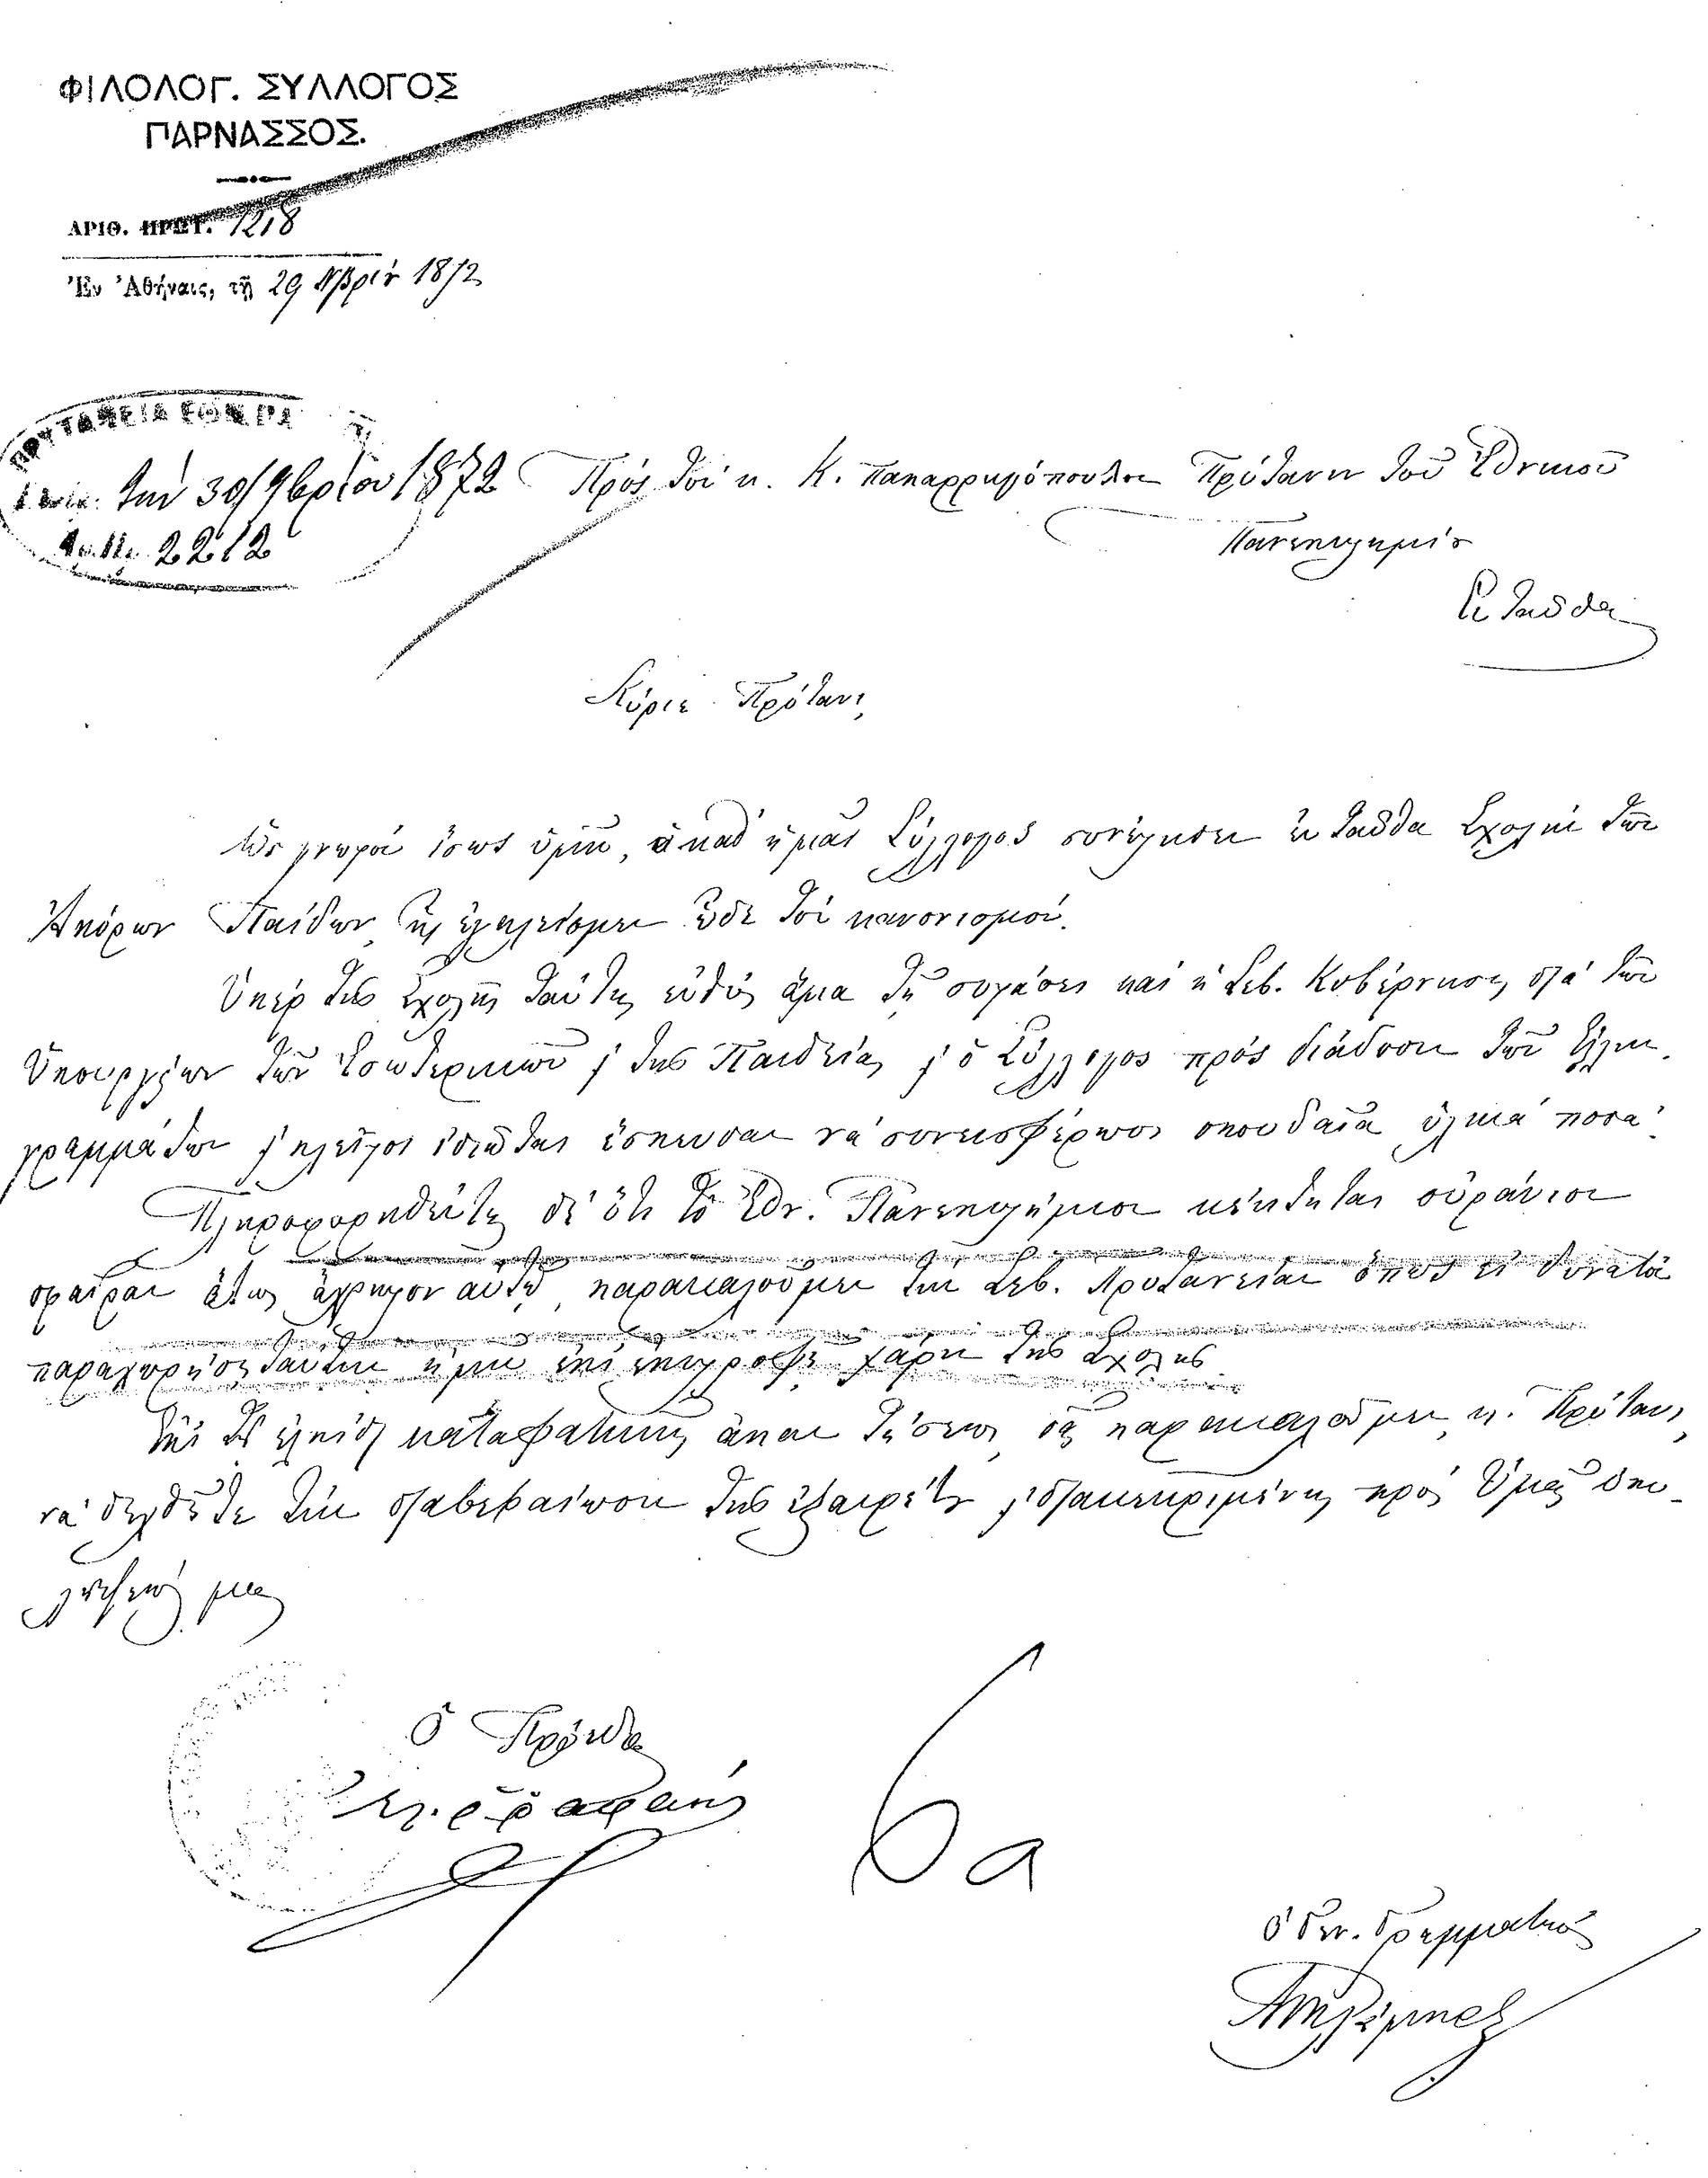 ΦΙΛΟΛΟΓ. ΣΥΛΛΟΓΟΣ
ΠΑΡΝΑΣΣΟΣ.
ΑΡΙΘ. ΠΡΩΤ. 1218
Ἐν Ἀθήναις, τῇ 29 Νβρίου 1872
ΠΡΥΤΑΝΕΙΑ ΕΘΝ. ΠΑ
τὴν 30/9βρίου 1872
2212
Πρὸς τὸν κ. Κ. Παπαρρηγόπουλον Πρύτανιν τοῦ Ἐθνικοῦ
Πανεπιστημίου
Ἐνταῦθα
Κύριε Πρύτανι,
Ὡς γνωστὸν ἴσως ὑμῖν, ὁ καθ' ἡμᾶς Σύλλογος συνέστησεν ἐνταῦθα Σχολὴν τῶν
Ἀπόρων Παίδων, ἧς ἐγκλείομεν ὧδε τὸν κανονισμόν.
Ὑπὲρ τῆς Σχολῆς ταύτης εὐθὺς ἅμα τῇ συστάσει καὶ ἡ Σεβ. Κυβέρνησις διὰ τῶν
Ὑπουργείων τῶν Ἐσωτερικῶν καὶ τῆς Παιδείας καὶ ὁ Σύλλογος πρὸς διάδοσιν τῶν Ἑλλην.
γραμμάτων καὶ πλεῖστοι ἰδιῶται ἔσπευσαν νὰ συνεισφέρωσι σπουδαῖα ὑλικὰ ποσά.
Πληροφορηθέντες δὲ ὅτι τὸ Ἐθν. Πανεπιστήμιον κέκτηται οὐράνιον
σφαῖραν ἄχρηστον αὐτῷ, παρακαλοῦμεν τὴν Σεβ. Πρυτανείαν ὅπως εἰ δυνατὸν
παραχωρήσῃ ταύτην ἡμῖν ἐπὶ ἐπιστροφῇ χάριν τῆς Σχολῆς
Ἐπὶ τῇ ἐλπίδι καταφατικῆς ἀπαντήσεως, σᾶς παρακαλοῦμεν, κ. Πρύτανι,
νὰ δεχθῆτε τὴν διαβεβαίωσιν τῆς ἐξαιρέτου καὶ διακεκριμένης πρὸς Ὑμᾶς ὑπο-
λήψεώς μας
Ὁ Πρόεδρος
6α
Ὁ Γεν. Γραμματεύς